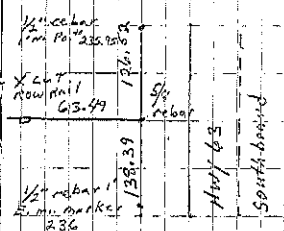 1/2" rebar
mi. Po
136.
X CUT
ROW Rail
63.49
5/8"
rebar
138.39
1/2" rebar
mi. marker
236
Hwy 63
Southbound